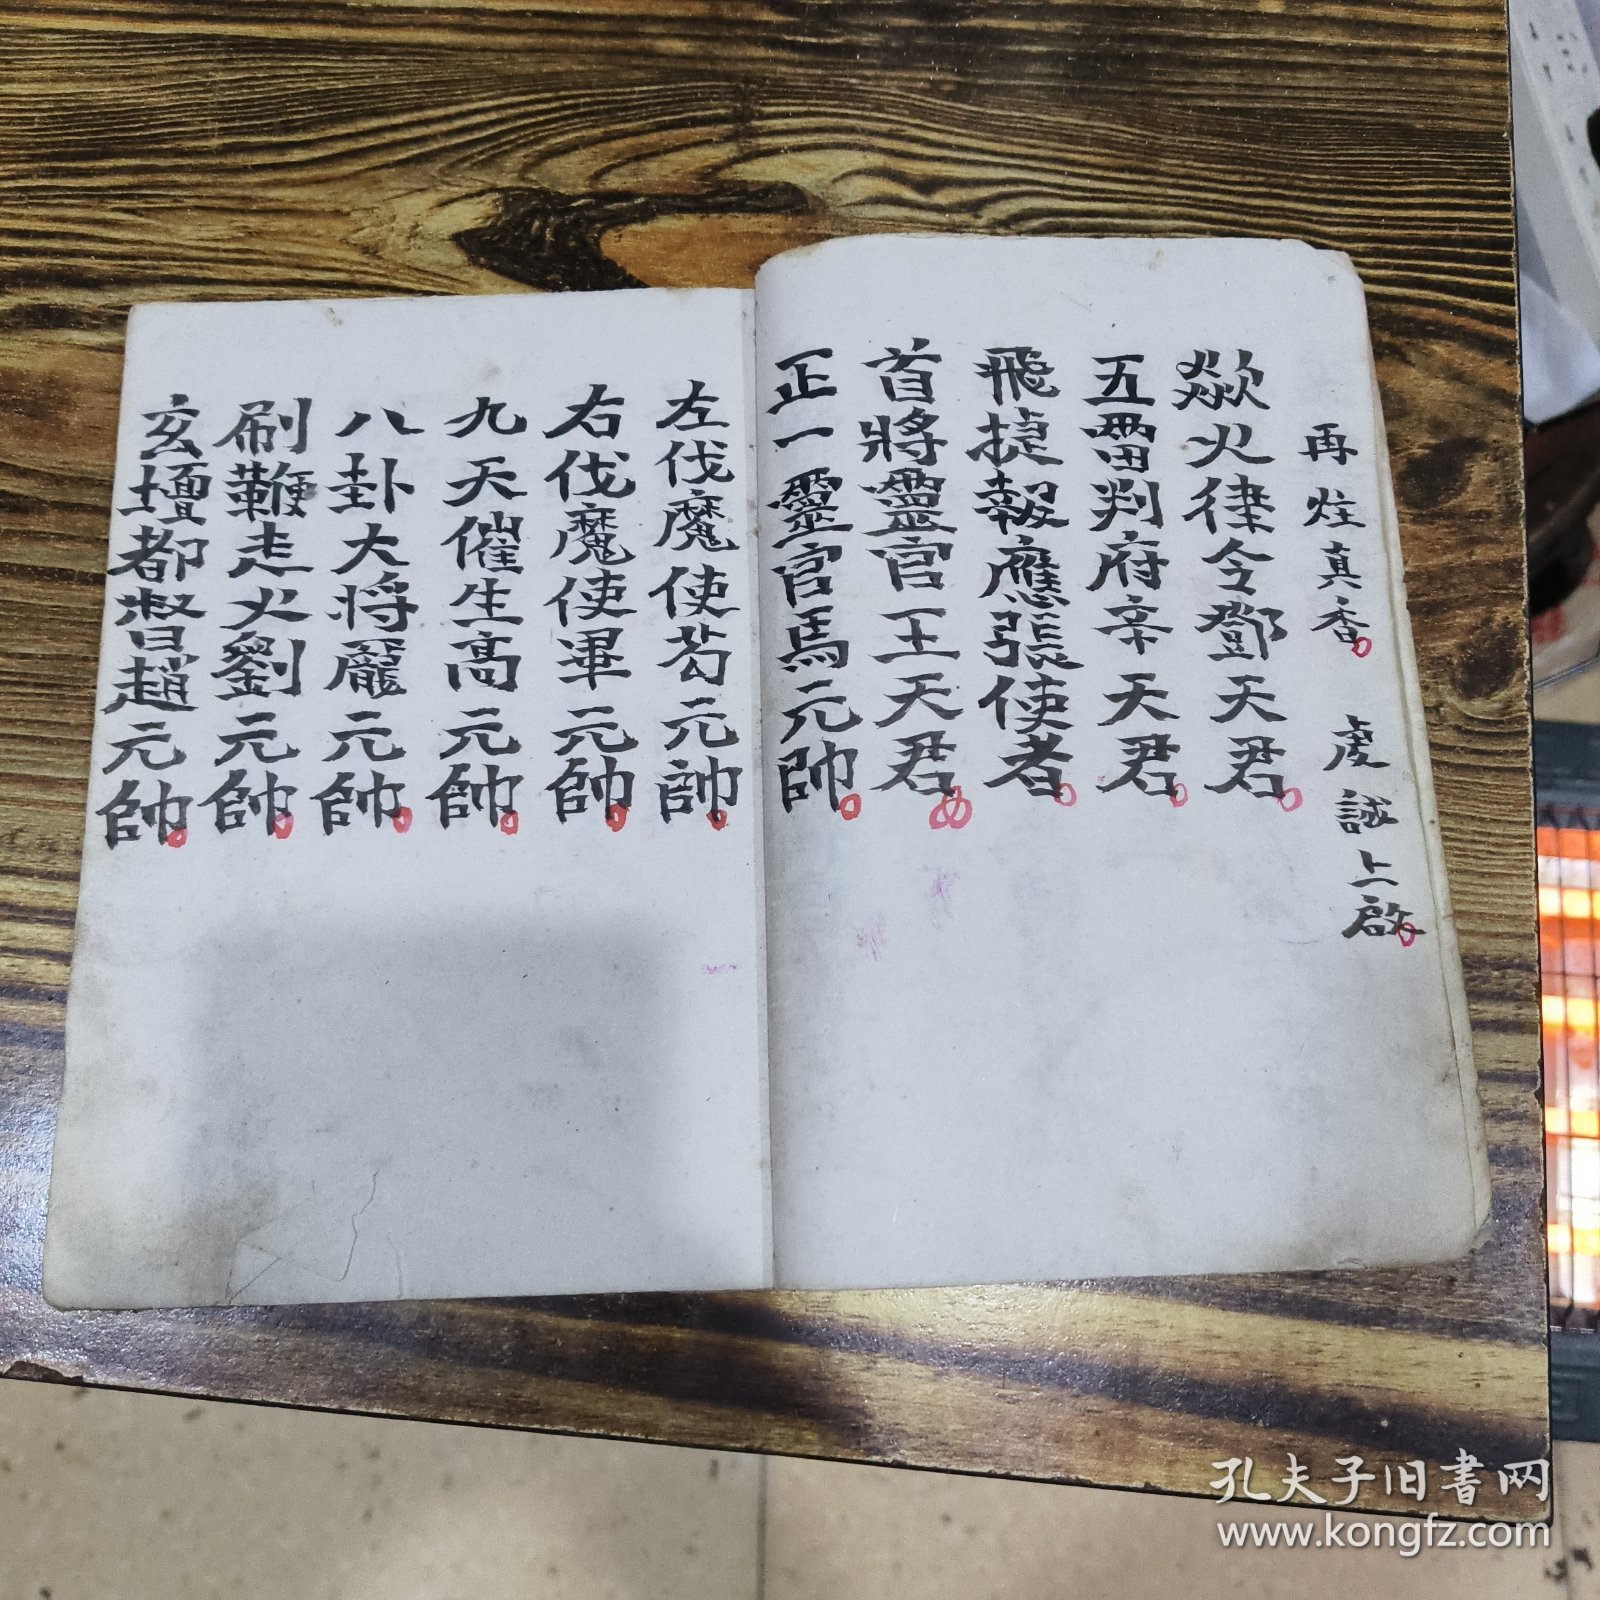 再炷真香 虔誠上啟
歘火律令鄧天君
五雷判府辛天君
飛捷報應張使者
首將靈官王天君
正一靈官馬元帥
左伐魔使苟元帥
右伐魔使畢元帥
九天催生高元帥
八卦大將龐元帥
刷鞭走火劉元帥
玄壇都督趙元帥
孔夫子旧書网
www.kongfz.com